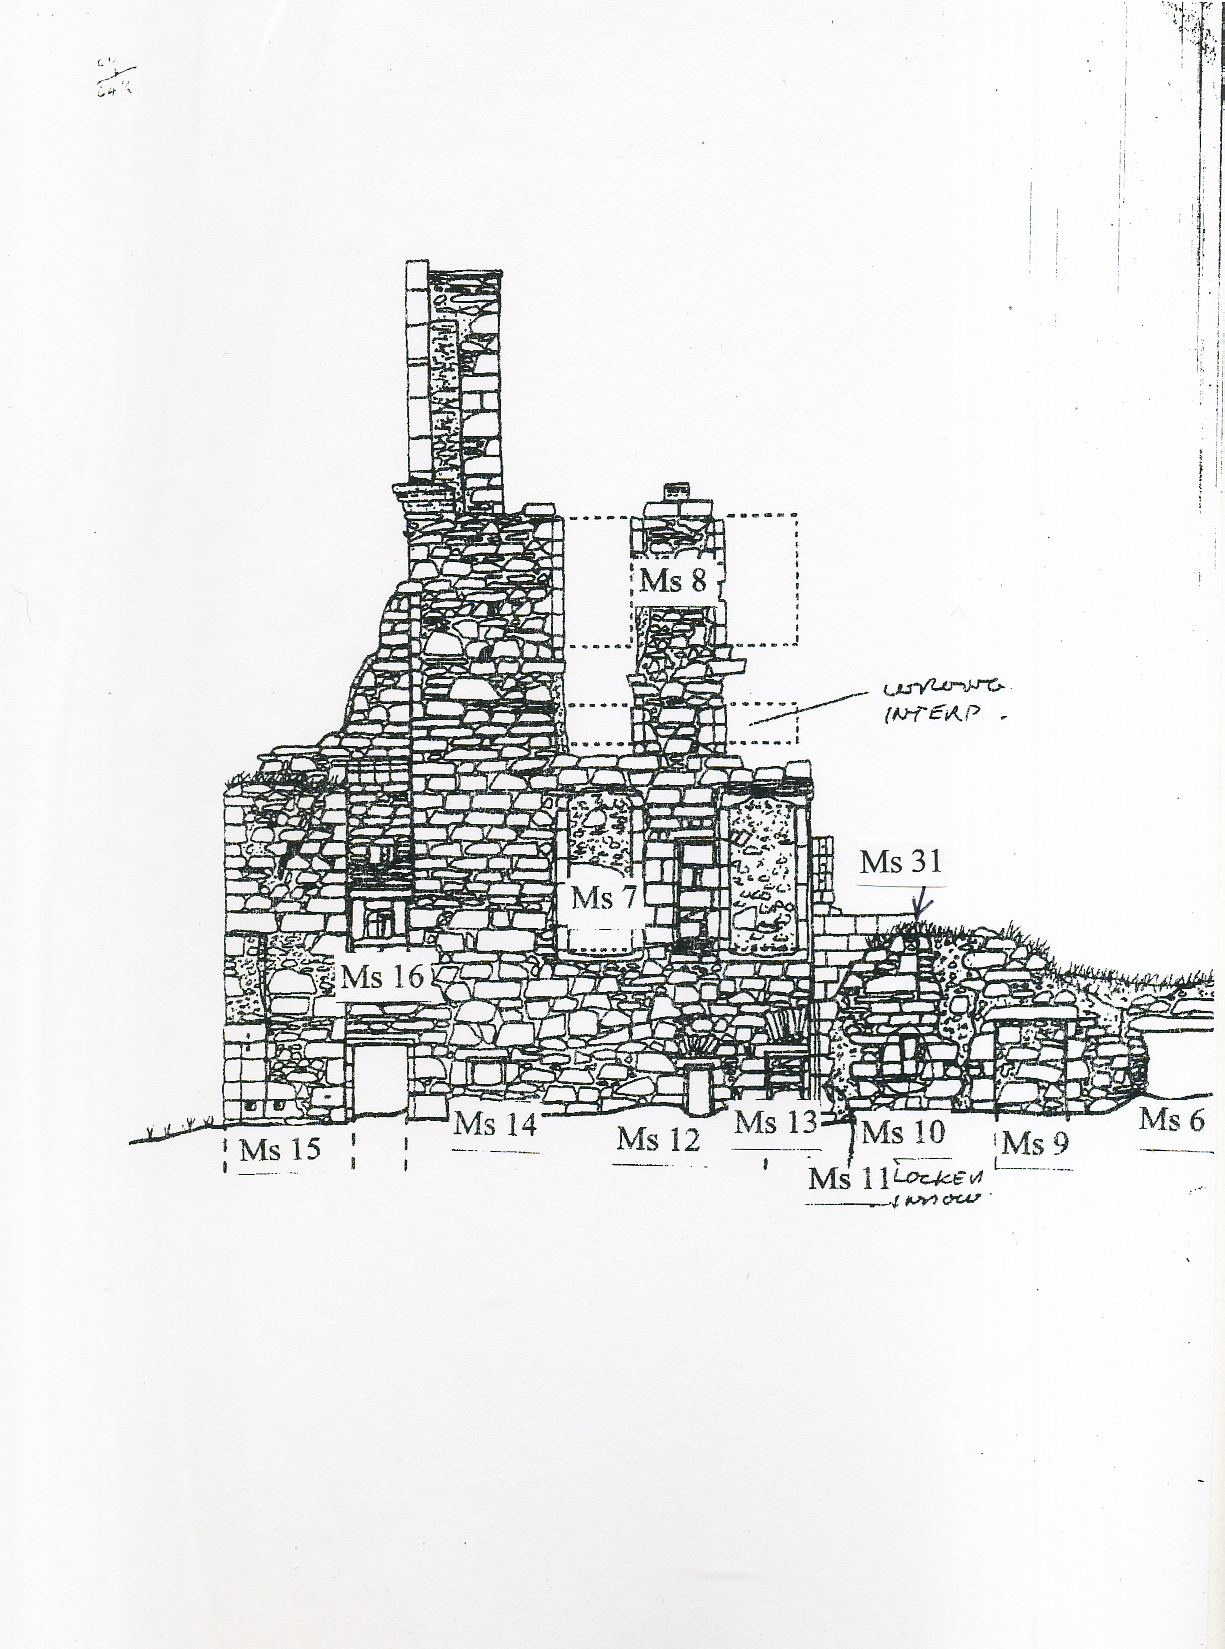 Ms 8
WRONG
INTERP.
Ms 31
Ms 7
Ms 16
Ms 14
Ms 13
Ms 10
Ms 6
Ms 15
Ms 12
Ms 9
Ms 11